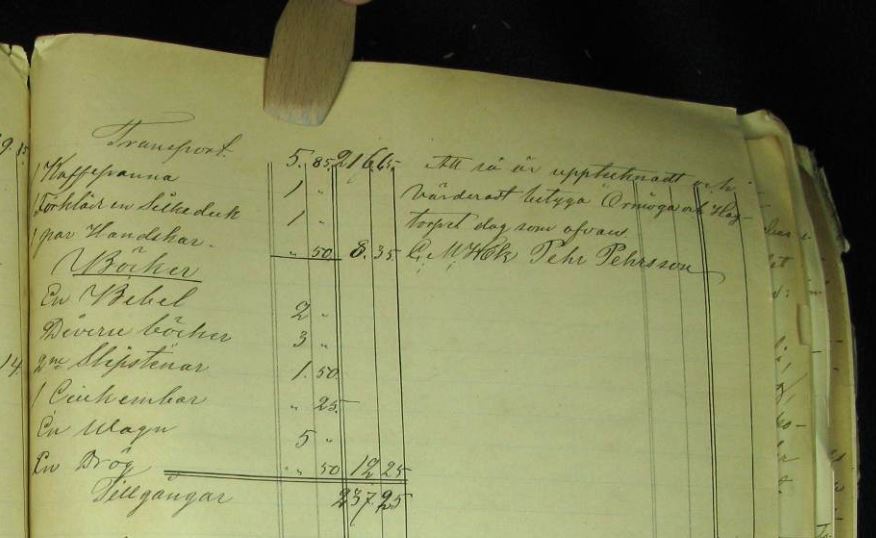 Transport. 5. 85 216 65
1 Kaffepanna 1 "
1 Förkläde en Silkeduk 1 "
1 par Handskar. " 50 8. 35
Böcker
En Bibel 2 "
Diverse böcker 3 "
2ne Slipstenar 1. 50
1 " 25
En Wagn 5 "
En Drög " 50 12 25
Tillgångar 237 25
Att så är upptecknadt och
värderadt betyga Örmöga och Hag-
torpet dag som ofvan
Pehr Pehrsson
14